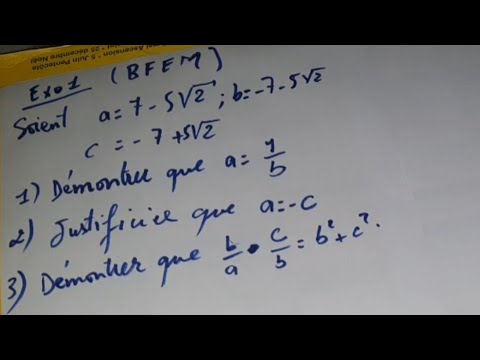 Ascension * 5 Juin Pentecôte
* 25 décembre Noël
Exo 1 (BFEM)
Soient a = 7 - 5√2 ; b = -7 - 5√2
c = -7 + 5√2
1) Démontrer que a = 1/b
2) Justificice que a = -c
3) Démontrer que b/a • c/b = b² + c².